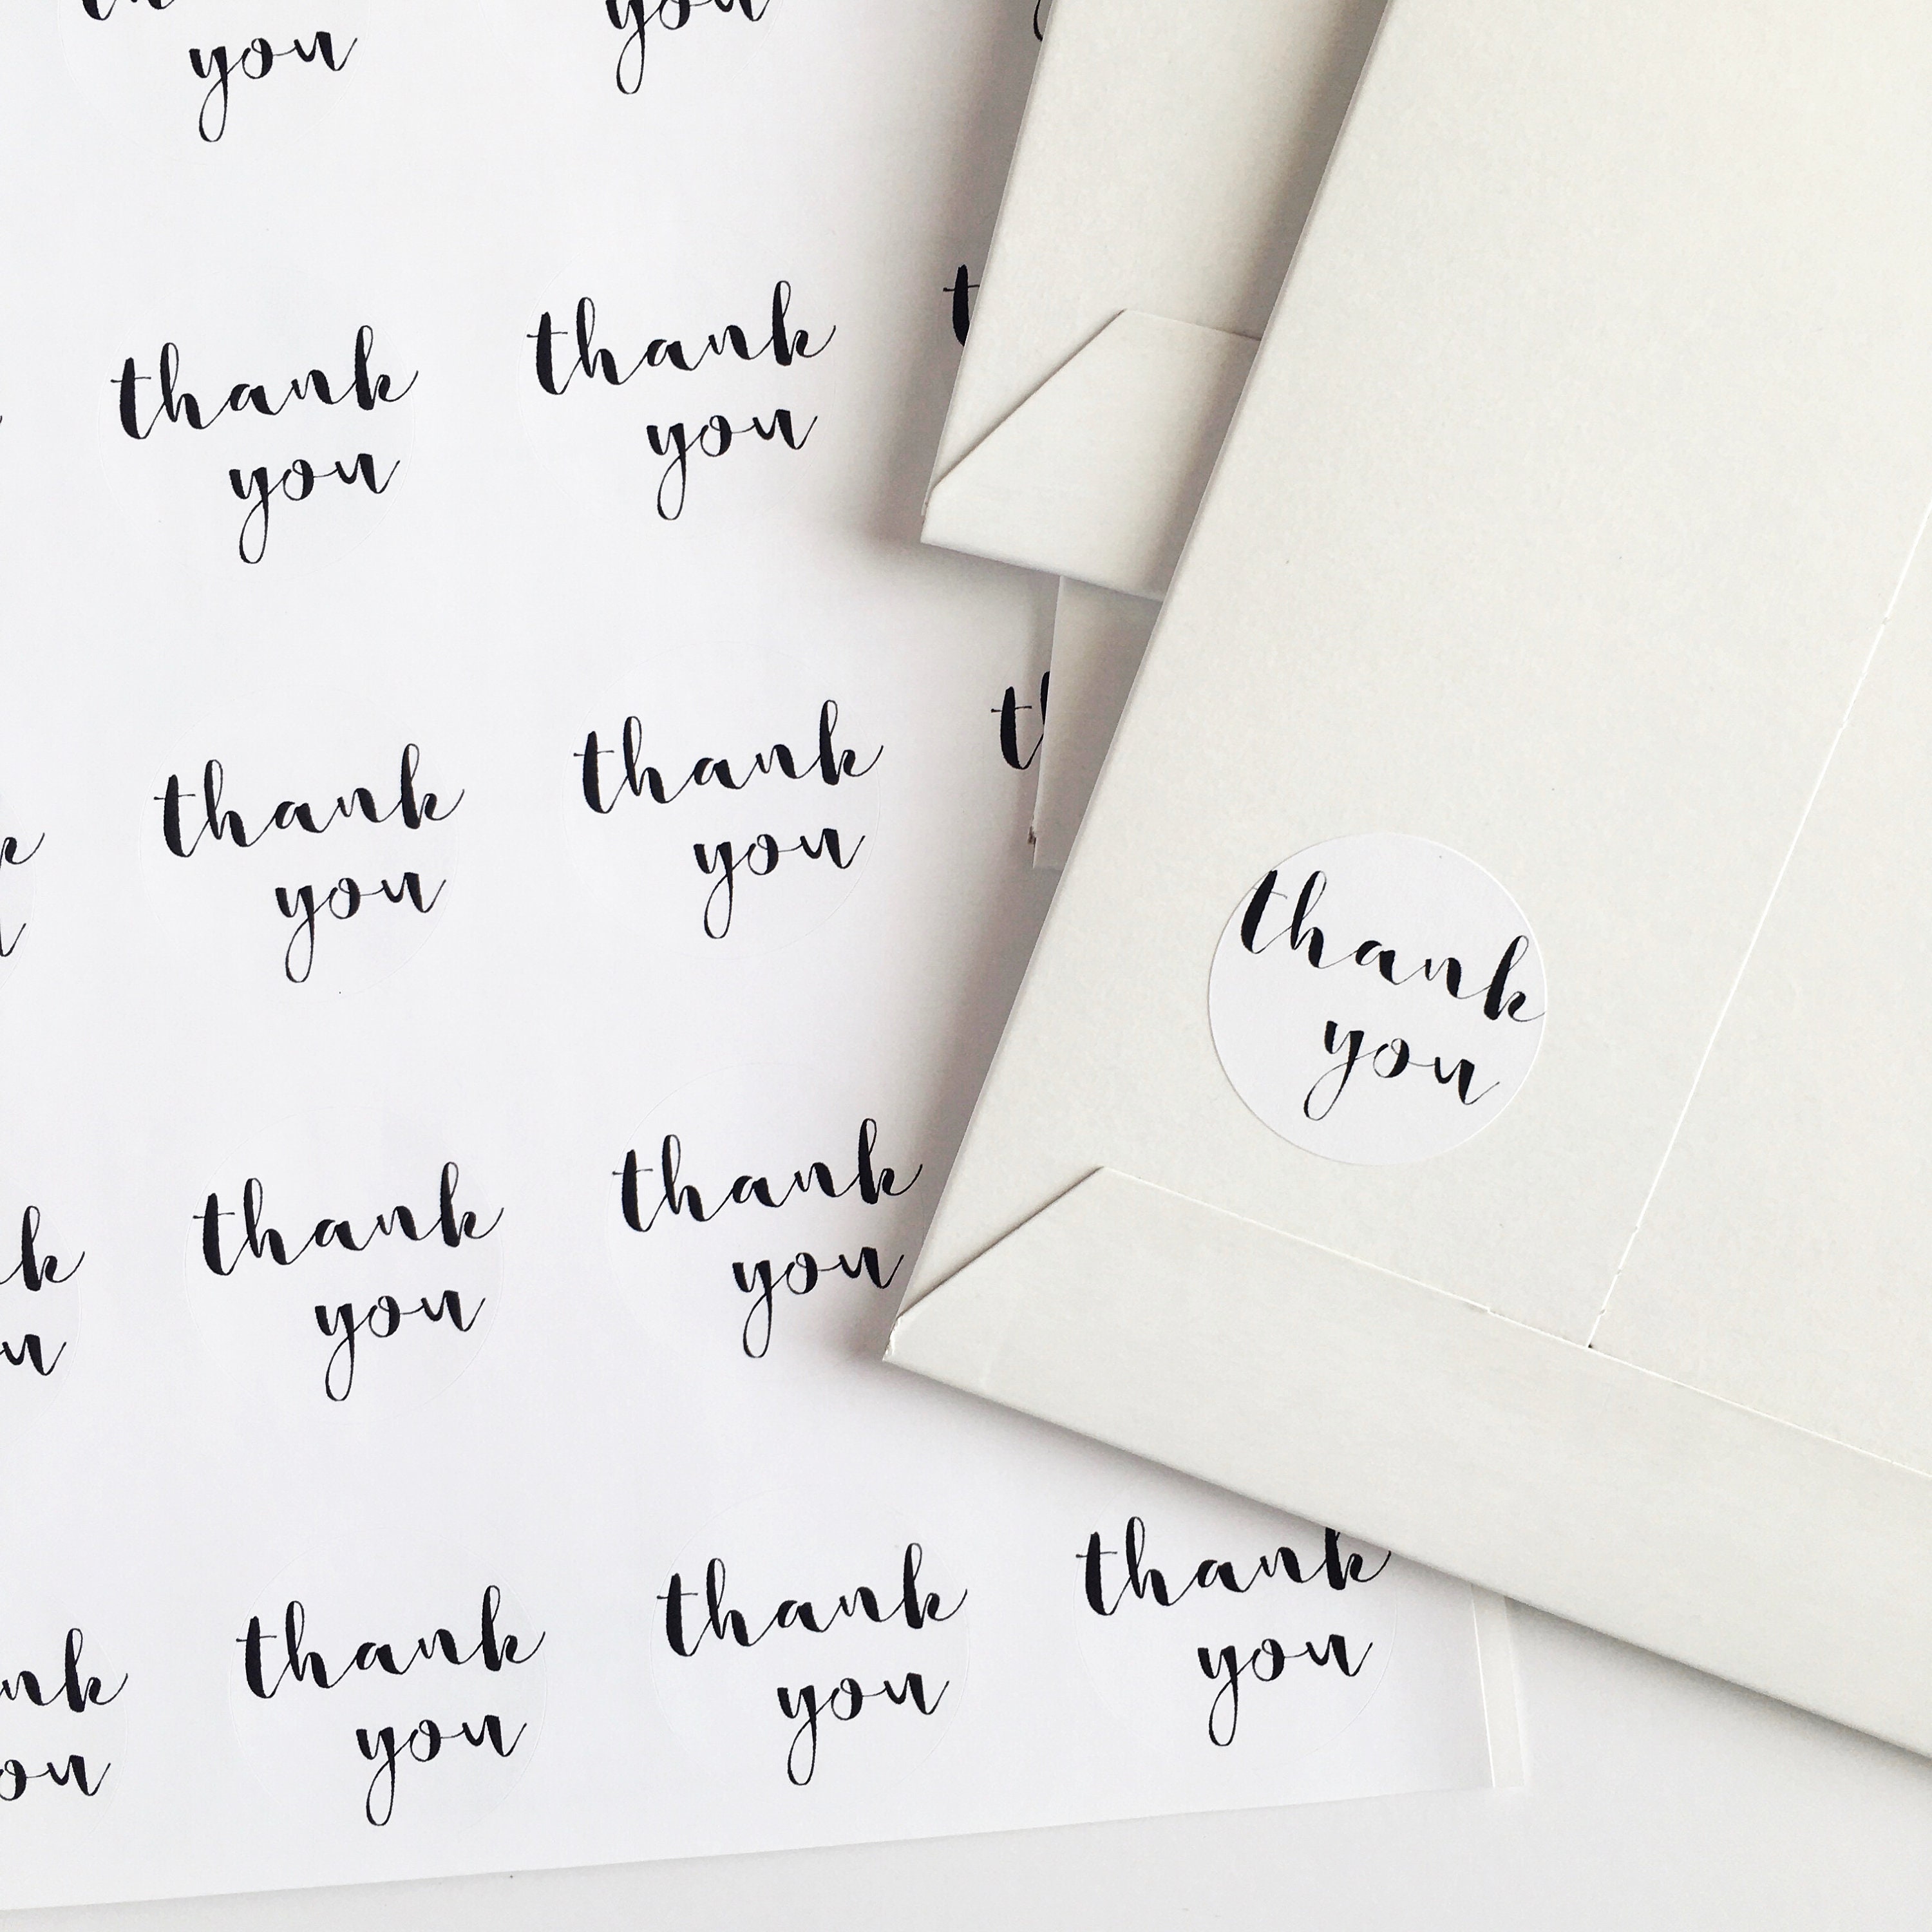 you
you
thank
you
thank
you
thank
you
thank
you
thank
you
thank
you
thank
you
thank
you
thank
you
thank
you
thank
you